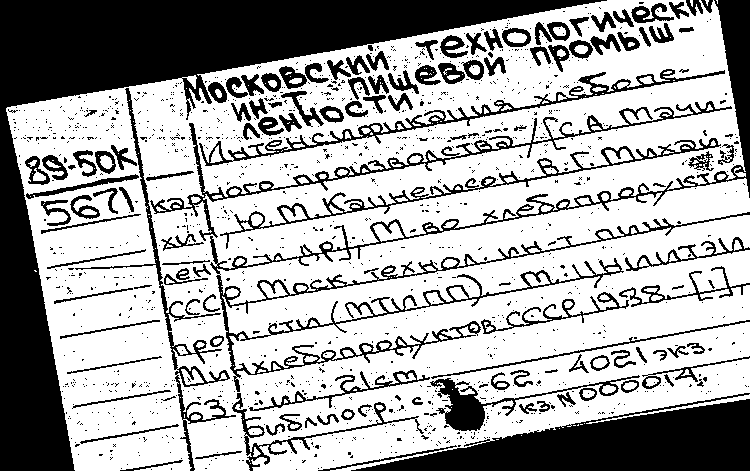 Московский технологический
ин-т пищевой промыш-
ленности.
89-50К
5671
Интенсификация хлебопе-
карного производства / [С.А. Мачи-
хин, Ю.М. Кацнельсон, В.Г. Михай-
ленко и др.], М-во хлебопродуктов
СССР, Моск. технол. ин-т пищ.
пром-сти (МТИПП). - М.: ЦНИИТЭИ
Минхлебопродуктов СССР, 1988. - [1],
63 с.: ил.; 21 см.
Библиогр.: с. -62. - 4021 экз.
ДСП. Экз. N 000014.